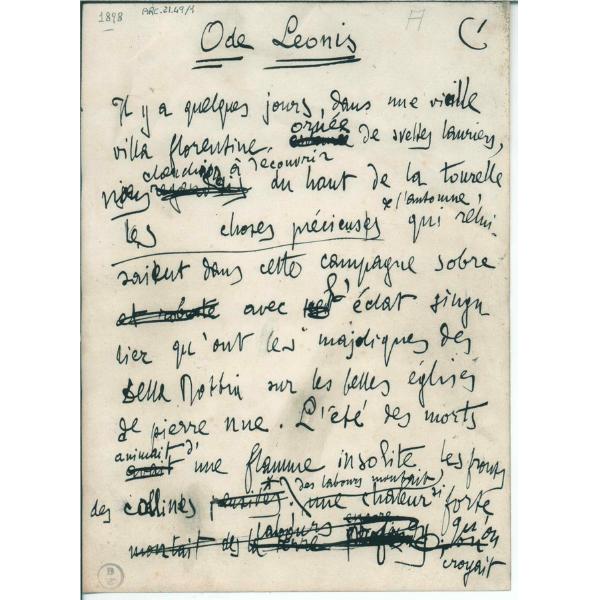 1898 ARC.21.49/1
Ode Leonis
Il y a quelques jours, dans une vieille
villa florentine ornée de sveltes lauriers,
à découvrir
nous du haut de la tourelle
de l'automne
les choses précieuses qui relui-
saient dans cette campagne sobre
et robuste avec l'éclat singu
lier qu'ont les majoliques des
Della Robbia sur les belles églises
de pierre nue. L'été des morts
animait d'
une flamme insolite les fronts
des labours montait,
des collines une chaleur si forte
labours encore
montait des la terre qu'on
croyait